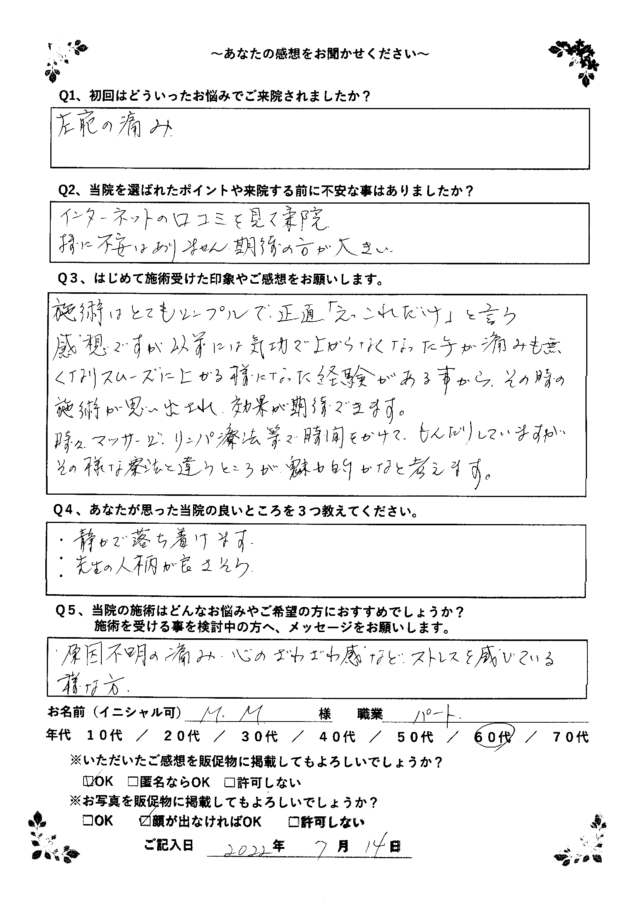 ～あなたの感想をお聞かせください～
Q1、初回はどういったお悩みでご来院されましたか？
左腕の痛み
Q2、当院を選ばれたポイントや来院する前に不安な事はありましたか？
インターネットの口コミを見て来院
特に不安はありません期待の方が大きい
Q３、はじめて施術受けた印象やご感想をお願いします。
施術はとてもシンプルで、正直「えっこれだけ」と言う
感想ですが以前には気功で上がらなくなった手が痛みも無
くなりスムーズに上がる様になった経験がある事から、その時の
施術が思い出され、効果が期待できます。
時々マッサージ、リンパ療法等で時間をかけて、もんだりしていますが
その様な療法と違うところが、魅力的かなと考えます。
Q４、あなたが思った当院の良いところを３つ教えてください。
・静かで落ち着けます
・先生の人柄が良さそう
・
Q５、当院の施術はどんなお悩みやご希望の方におすすめでしょうか？
施術を受ける事を検討中の方へ、メッセージをお願いします。
・原因不明の痛み、心のざわざわ感など、ストレスを感じている
様な方
お名前（イニシャル可） M.M 様 職業 パート
年代 １０代 ／ ２０代 ／ ３０代 ／ ４０代 ／ ５０代 ／ ６０代 ／ ７０代
※いただいたご感想を販促物に掲載してもよろしいでしょうか？
☑OK □匿名ならOK □許可しない
※お写真を販促物に掲載してもよろしいでしょうか？
□OK ☑顔が出なければOK □許可しない
ご記入日 2022年 7月 14日